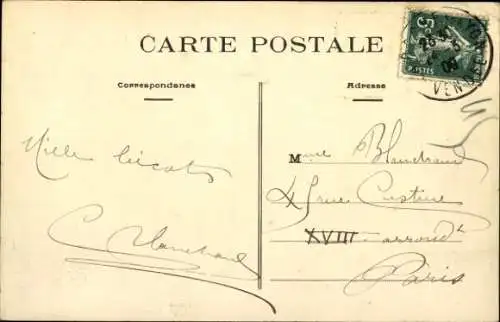 CARTE POSTALE
Correspondance
Adresse
5c
POSTES
Mille bécots
C Blanchard
Mme Blanchard
45 rue Custine
XVIII arrondt
Paris